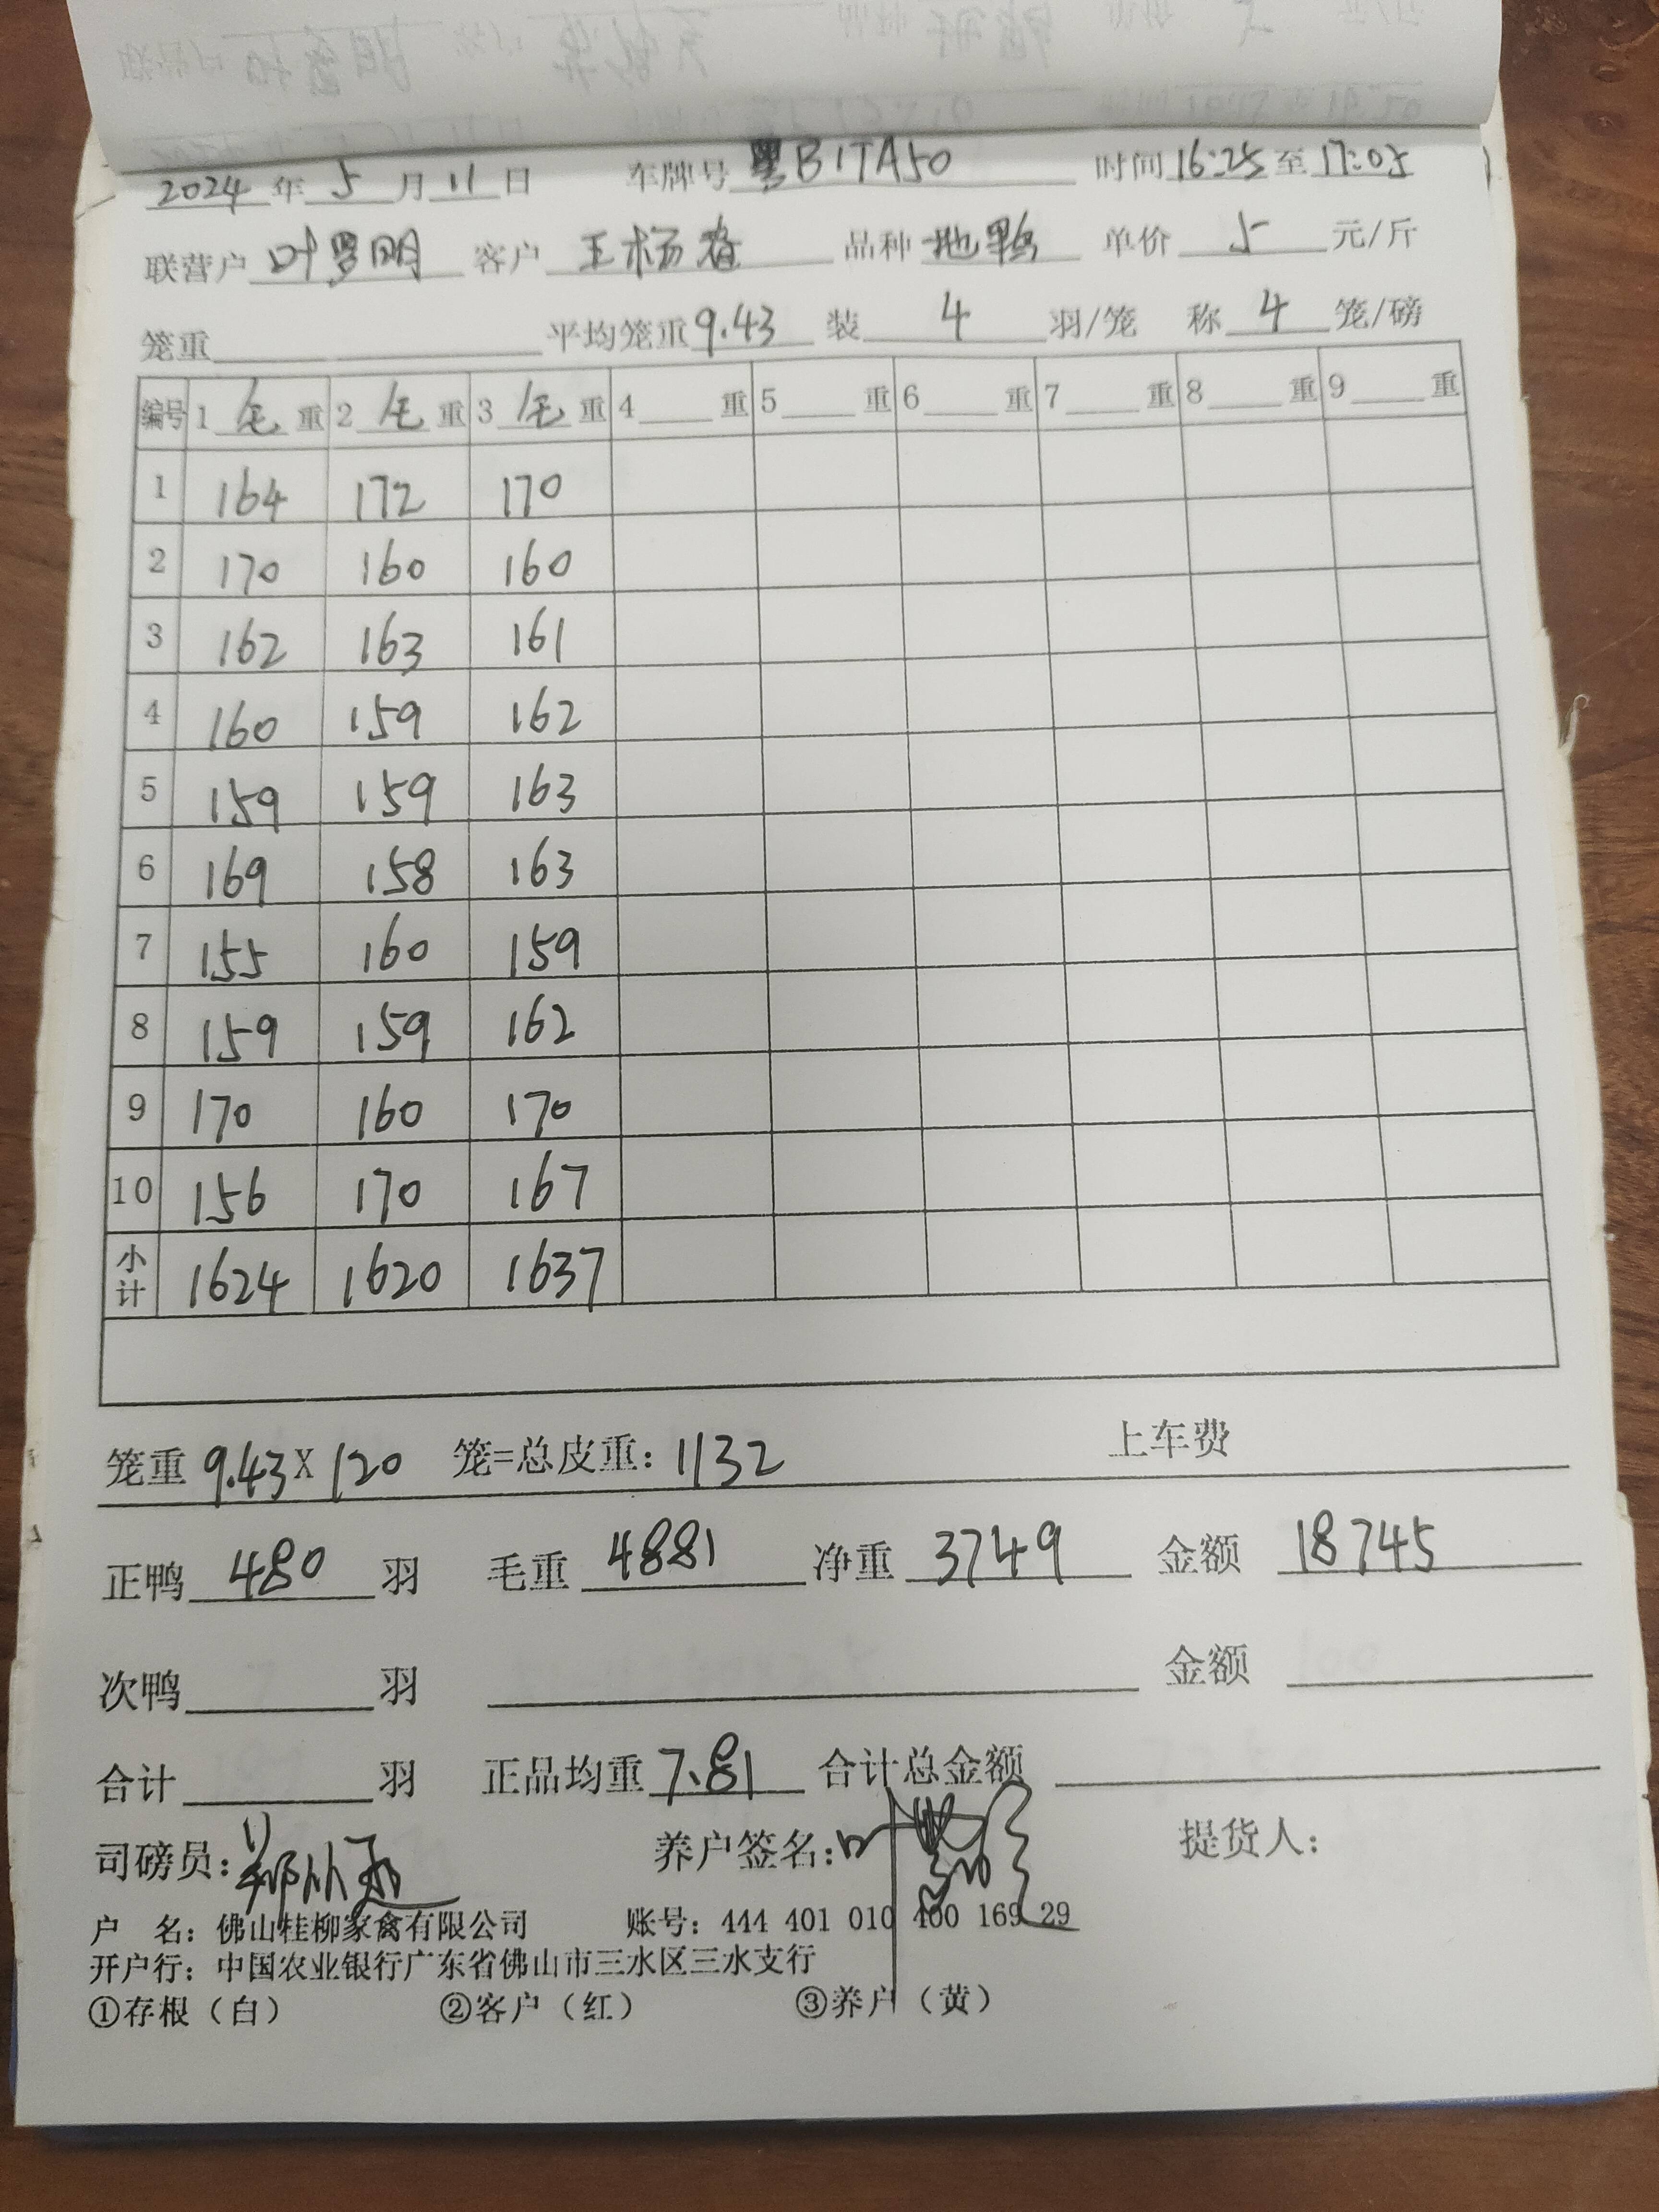 2024年5月11日 车牌号 黑B1TA50 时间16:25至17:05
联营户 叶罗明 客户 王杨春 品种 地鸭 单价 5 元/斤
笼重 平均笼重9.43 装 4 羽/笼 称 4 笼/磅
编号 1 毛 重 2 毛 重 3 毛 重 4 重 5 重 6 重 7 重 8 重 9 重
1 164 172 170
2 170 160 160
3 162 163 161
4 160 159 162
5 159 159 163
6 169 158 163
7 155 160 159
8 159 159 162
9 170 160 170
10 156 170 167
小计 1624 1620 1637
笼重 9.43X120 笼=总皮重: 1132 上车费
正鸭 480 羽 毛重 4881 净重 3749 金额 18745
次鸭 羽 金额
合计 羽 正品均重 7.81 合计总金额
司磅员: 养户签名: 提货人:
户 名: 佛山桂柳家禽有限公司 账号: 444 401 010 400 169 29
开户行: 中国农业银行广东省佛山市三水区三水支行
①存根（白） ②客户（红） ③养户（黄）